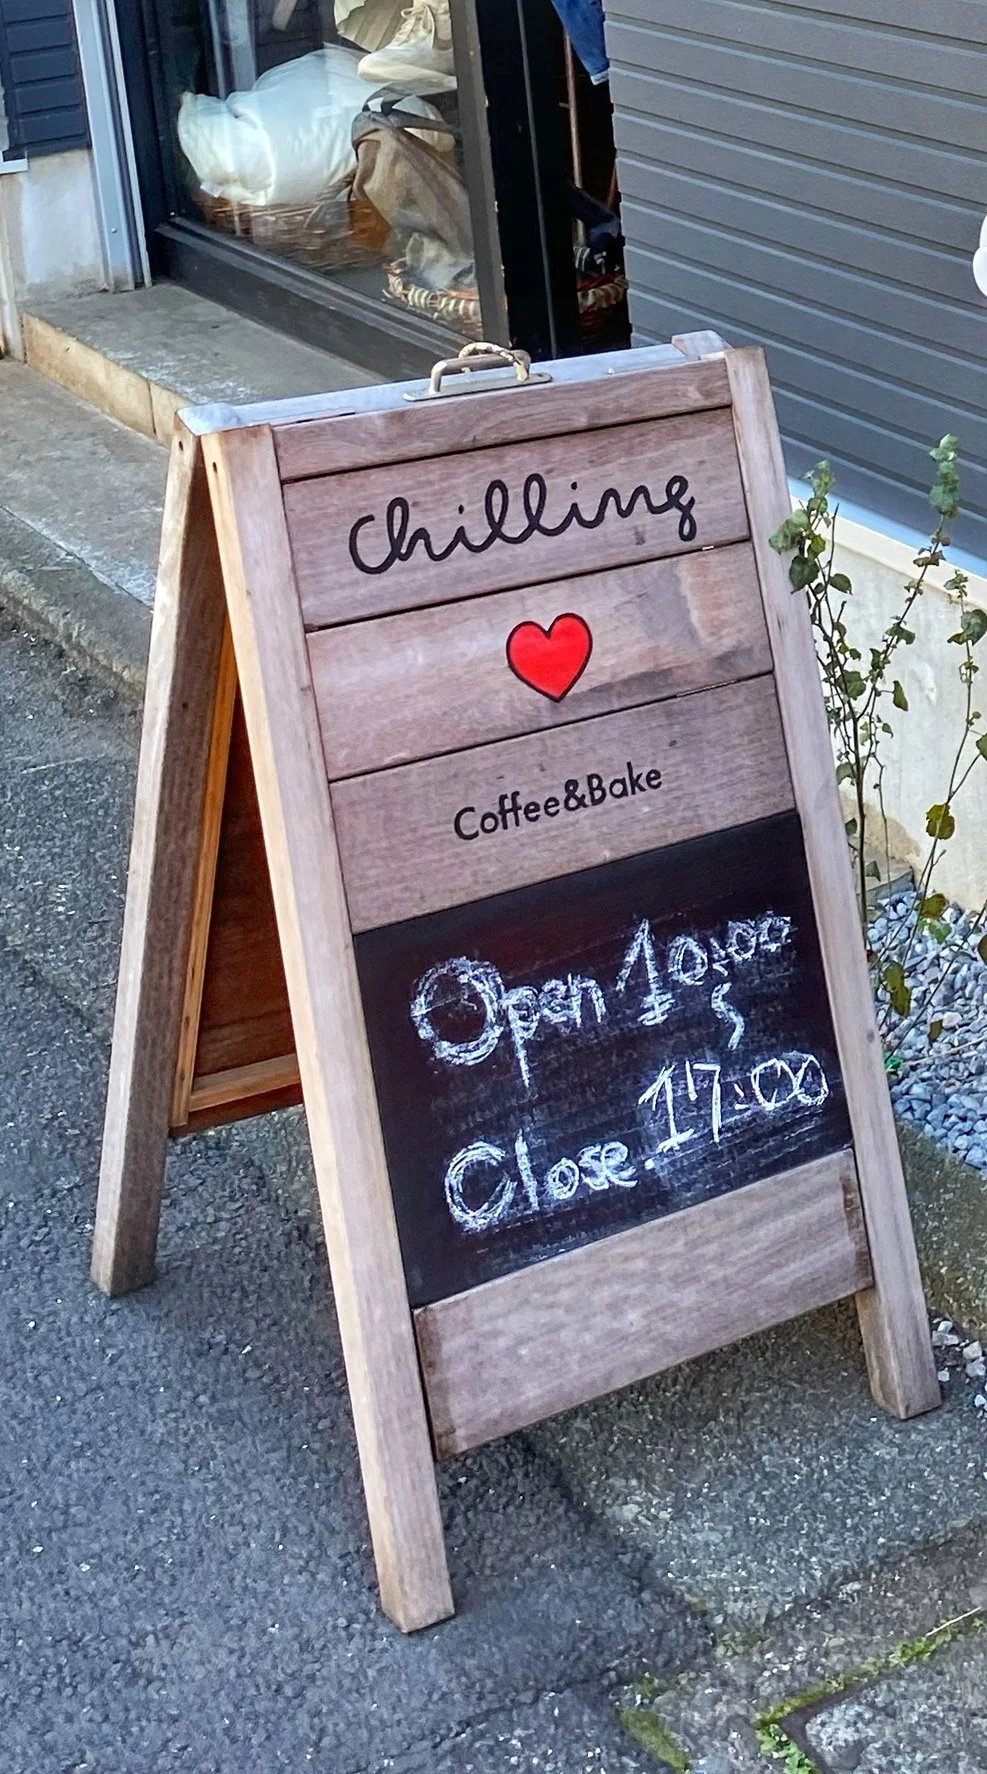 chilling
Coffee&Bake
Open 10:00
~
Close 17:00